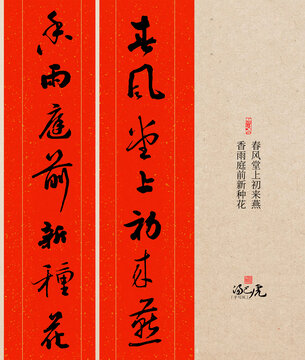 春风堂上初来燕
香雨庭前新种花
春风堂上初来燕
香雨庭前新种花